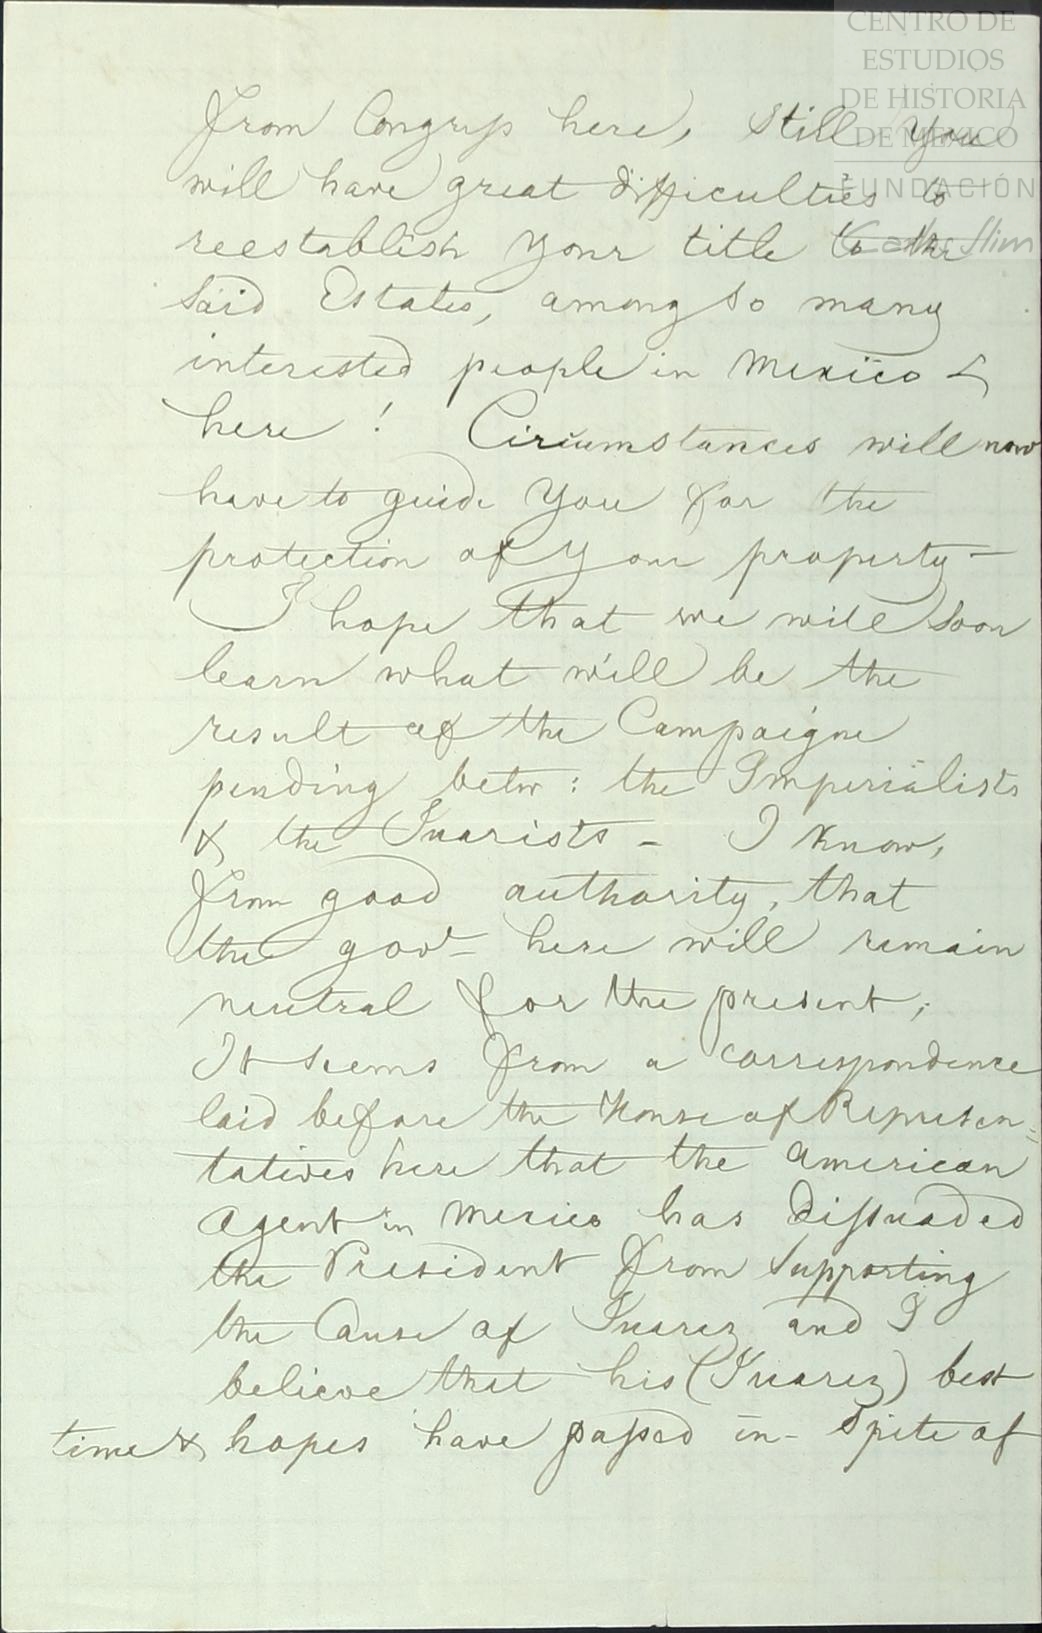 CENTRO DE
ESTUDIOS
DE HISTORIA
DE MEXICO
FUNDACIÓN
Carlos Slim
from Congress here, still you
will have great difficulties to
reestablish your title to the
said Estates, among so many
interested people in Mexico &
here! Circumstances will now
have to guide you for the
protection of your property —
I hope that we will soon
learn what will be the
result of the Campaigne
pending betw: the Imperialists
& the Juarists — I know,
from good authority, that
the govt here will remain
neutral for the present;
It seems from a correspondence
laid before the House of Represen=
tatives here that the American
Agent in Mexico has dissuaded
the President from supporting
the Cause of Juarez and I
believe that his (Juarez) best
time & hopes have passed in spite of